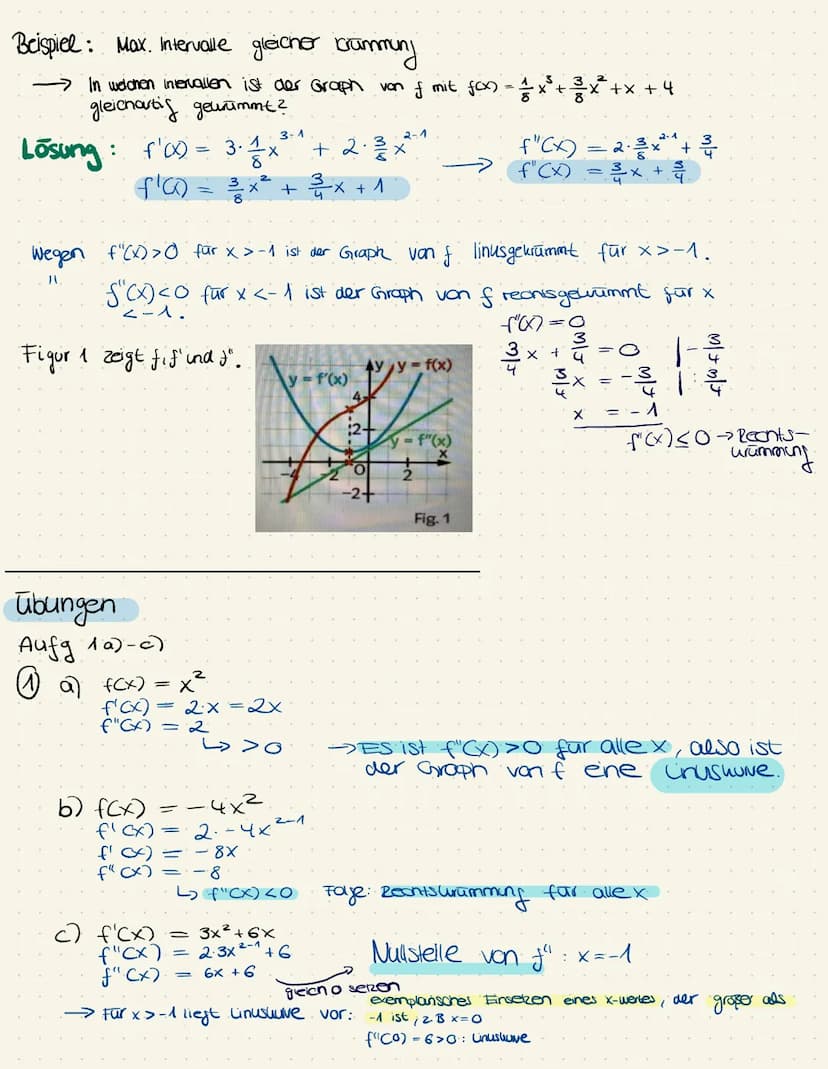 Beispiel: Max. Intervalle gleicher Krümmung
→ In welchen Intervallen ist der Graph von f mit f(x) = 1/8 x³ + 3/8 x² + x + 4
gleichartig gekrümmt?
Lösung: f'(x) = 3·1/8 x³⁻¹ + 2·3/8 x²⁻¹ → f"(x) = 2·3/8 x²⁻¹ + 3/4
f'(x) = 3/8 x² + 3/4 x + 1 f"(x) = 3/4 x + 3/4
Wegen f"(x)>0 für x>-1 ist der Graph von f linksgekrümmt für x>-1.
" f"(x)<0 für x<-1 ist der Graph von f rechtsgekrümmt für x
<-1.
f"(x)=0
Figur 1 zeigt f, f' und f".
3/4 x + 3/4 = 0 |-3/4
3/4 x = -3/4 |:3/4
x = -1
f"(x)≤0 → Rechts-
krümmung
y = f'(x) y y = f(x)
4
2
y = f"(x)
x
-4 -2 O 2
-2
Fig. 1
Übungen
Aufg 1a)-c)
① a) f(x) = x²
f'(x) = 2·x = 2x
f"(x) = 2
↳ >0 → ES ist f"(x)>0 für alle x, also ist
der Graph von f eine Linkskurve.
b) f(x) = -4x²
f'(x) = 2·-4x²⁻¹
f'(x) = -8x
f"(x) = -8
↳ f"(x)<0 Folge: Rechtskrümmung für alle x
c) f'(x) = 3x²+6x
f"(x) = 2·3x²⁻¹+6
f"(x) = 6x+6
Nullstelle von f": x=-1
gleich 0 setzen
→ Für x>-1 liegt Linkskurve vor: exemplarisches Einsetzen eines x-wertes, der größer als
-1 ist, z.B x=0
f"(0)=6>0: Linkskurve